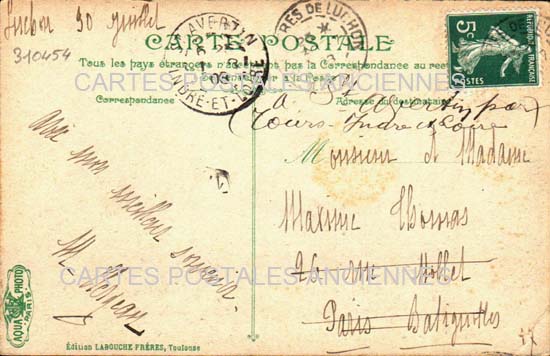 Luchon 30 juillet
310454
CARTE POSTALE
Tous les pays étrangers n'acceptent pas la correspondance au recto
Correspondance
Adresse du destinataire
ST AVERTIN
INDRE-ET-LOIRE
RES DE LUCHON
5c
REPUBLIQUE FRANÇAISE
POSTES
à St Avertin par
Tours - Indre et Loire
Monsieur et Madame
Maxime Thomas
26 rue Nollet
Paris Batignolles
avec mon meilleur souvenir
M.
CARTES POSTALES ANCIENNES
CARTES POSTALES ANCIENNES
AQUA PHOTO
PARIS
Édition LABOUCHE FRÈRES, Toulouse